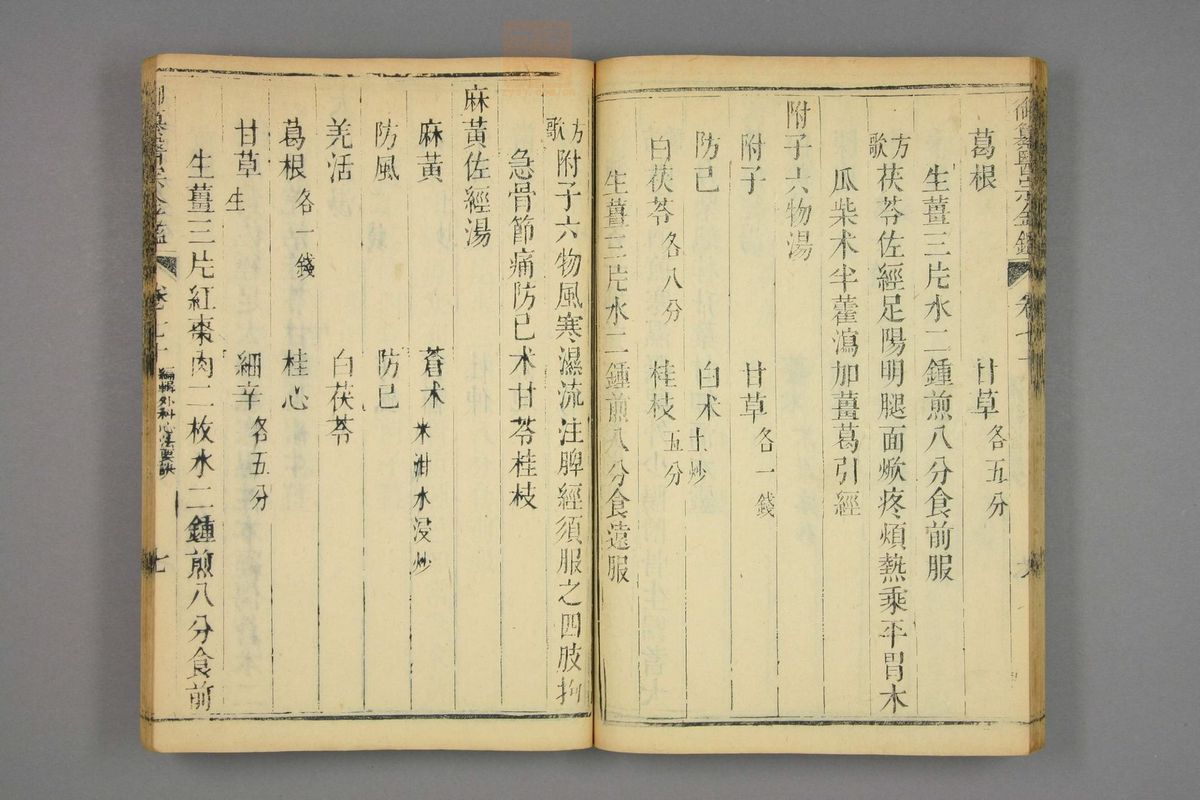 葛根　甘草各五分
生薑三片水二鍾煎八分食前服
方歌　茯苓佐經足陽明腿面焮疼煩熱乘平胃木
瓜柴术半藿瀉加薑葛引經
附子六物湯
附子　甘草各一錢
防己　白术土炒
白茯苓各八分　桂枝五分
生薑三片水二鍾煎八分食遠服
方歌　附子六物風寒濕流注脾經須服之四肢拘
急骨節痛防己术甘苓桂枝
麻黃佐經湯
麻黃　蒼术米泔水浸炒
防風　防己
羌活　白茯苓
葛根各一錢　桂心
甘草生　細辛各五分
生薑三片紅棗肉二枚水二鍾煎八分食前
醫宗金鑑　卷七十　編輯外科心法要訣　七